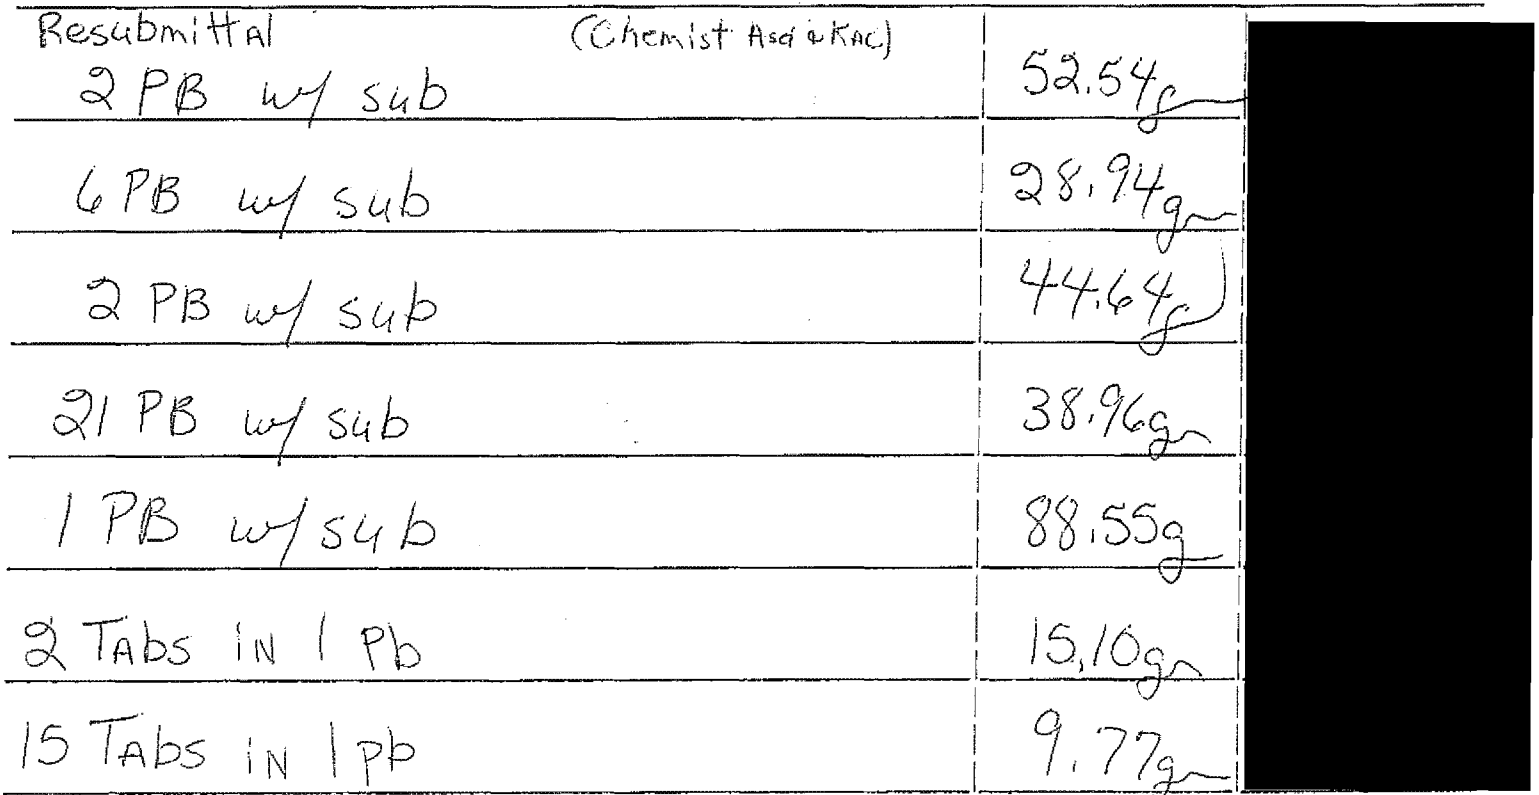 Resubmittal (Chemist Asd & KAC)
2 PB w/ sub 52.54g
6 PB w/ sub 28.94g
2 PB w/ sub 44.64g
21 PB w/ sub 38.96g
1 PB w/ sub 88.55g
2 Tabs in 1 Pb 15.10g
15 Tabs in 1 pb 9.77g